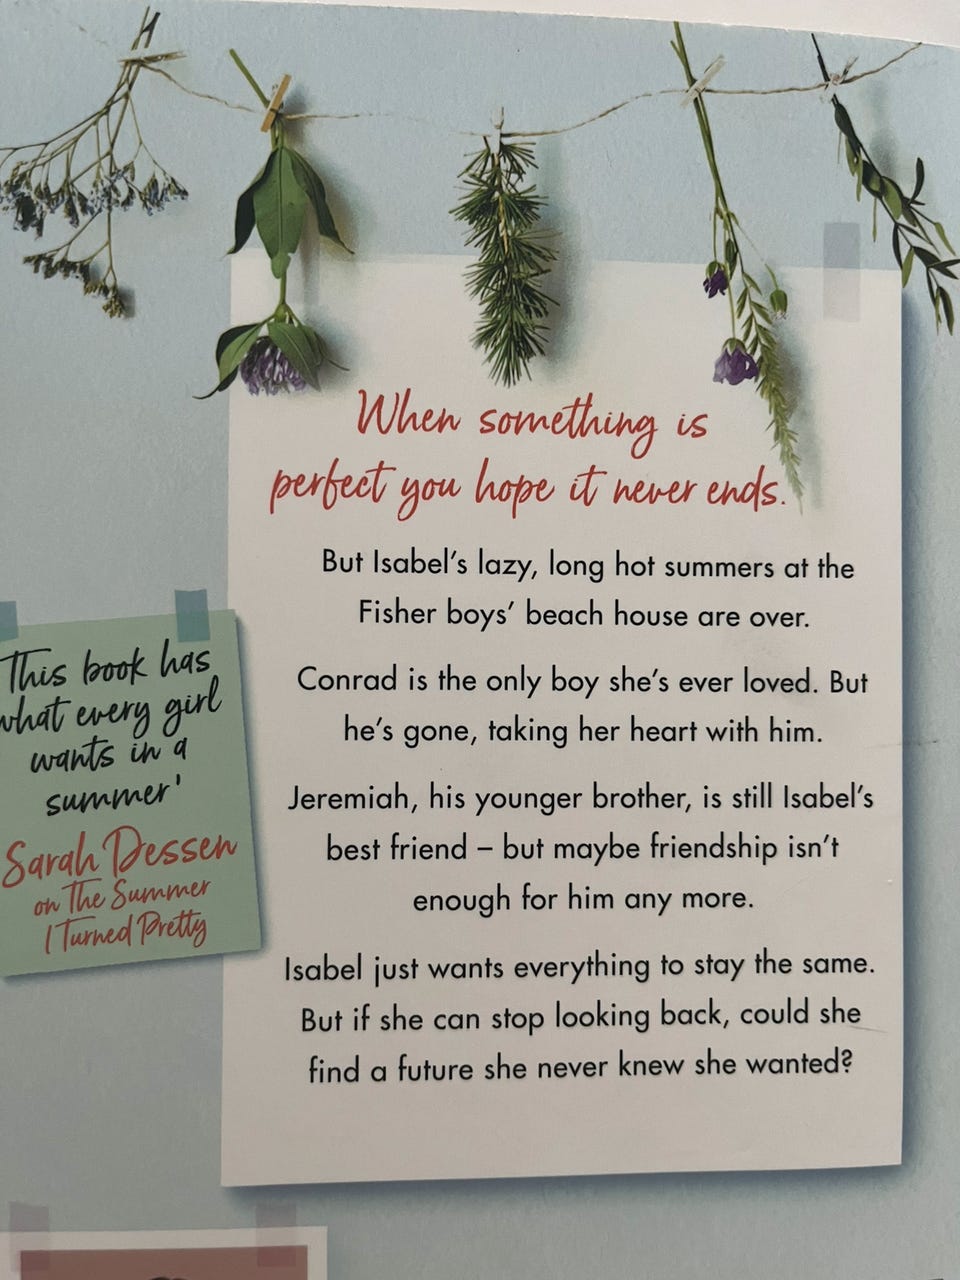 When something is
perfect you hope it never ends.
But Isabel's lazy, long hot summers at the
Fisher boys' beach house are over.
Conrad is the only boy she's ever loved. But
he's gone, taking her heart with him.
Jeremiah, his younger brother, is still Isabel's
best friend – but maybe friendship isn't
enough for him any more.
Isabel just wants everything to stay the same.
But if she can stop looking back, could she
find a future she never knew she wanted?
This book has
what every girl
wants in a
summer'
Sarah Dessen
on The Summer
I Turned Pretty